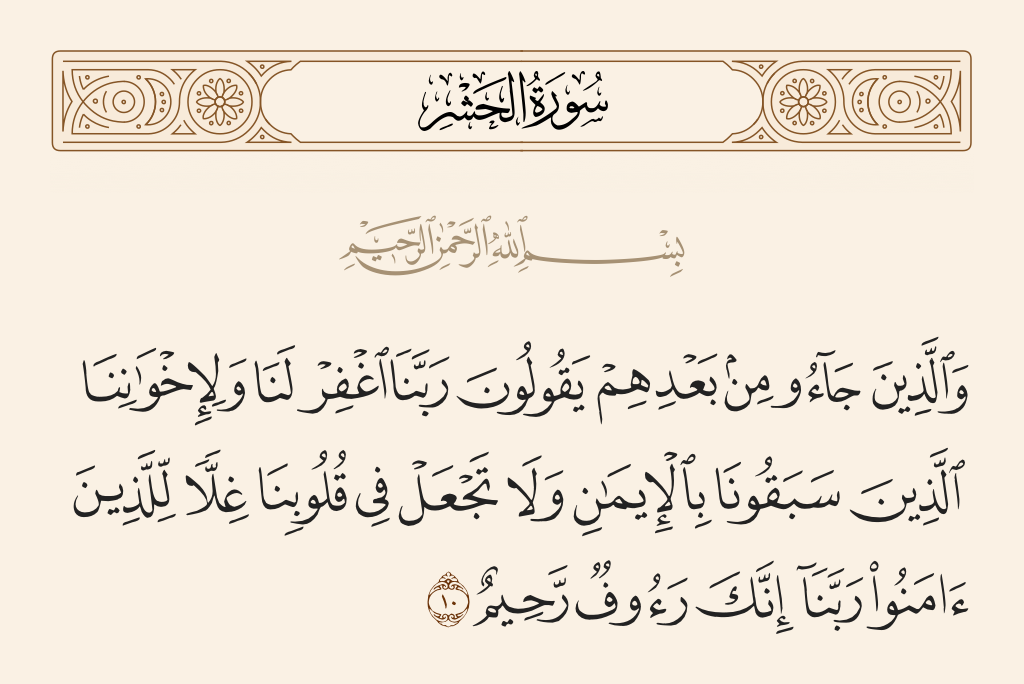 سُورَةُ الحَشْرِ
بِسْمِ ٱللَّهِ ٱلرَّحْمَٰنِ ٱلرَّحِيمِ
وَٱلَّذِينَ جَآءُو مِنۢ بَعْدِهِمْ يَقُولُونَ رَبَّنَا ٱغْفِرْ لَنَا وَلِإِخْوَٰنِنَا
ٱلَّذِينَ سَبَقُونَا بِٱلْإِيمَٰنِ وَلَا تَجْعَلْ فِى قُلُوبِنَا غِلًّا لِّلَّذِينَ
ءَامَنُوا۟ رَبَّنَآ إِنَّكَ رَءُوفٌ رَّحِيمٌ ١٠